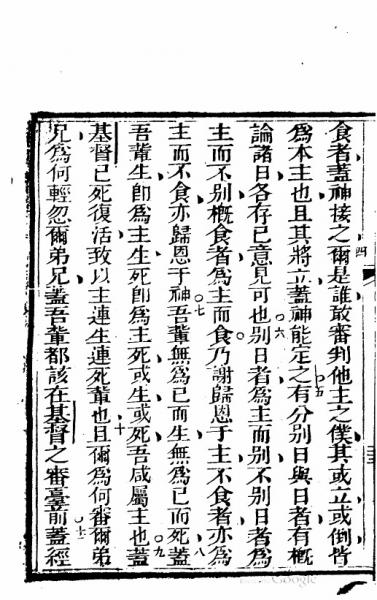 食者蓋神接之四爾是誰敢審判他主之僕其或立或倒皆
為本主也且其將立蓋神能定之五有分別日與日者有概
論諸日各存己意見可也六別日者為主而別不別日者為
主而不別概食者為主而食乃謝歸恩于主不食者亦為
主而不食亦歸恩于神七吾輩無為己而生無為己而死八蓋
吾輩生即為主生死即為主死或生或死吾咸屬主也九蓋
基督已死復活致以主連生連死輩也十且爾為何審爾弟
兄為何輕忽爾弟兄蓋吾輩都該在基督之審臺前十一蓋經
Google